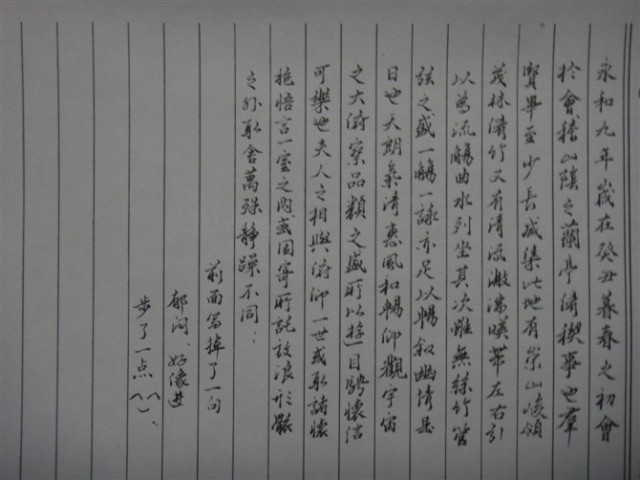 永和九年歲在癸丑暮春之初會
於會稽山陰之蘭亭脩稧事也羣
賢畢至少長咸集此地有崇山峻領
茂林脩竹又有清流激湍暎帶左右引
以為流觴曲水列坐其次雖無絲竹管
弦之盛一觴一詠亦足以暢叙幽情是
日也天朗氣清惠風和暢仰觀宇宙
之大俯察品類之盛所以遊目騁懷信
可樂也夫人之相與俯仰一世或取諸懷
抱悟言一室之內或因寄所託放浪形骸
之外取舍萬殊靜躁不同：
前面写掉了一句
郁闷、好像进
步了一点（^^）、